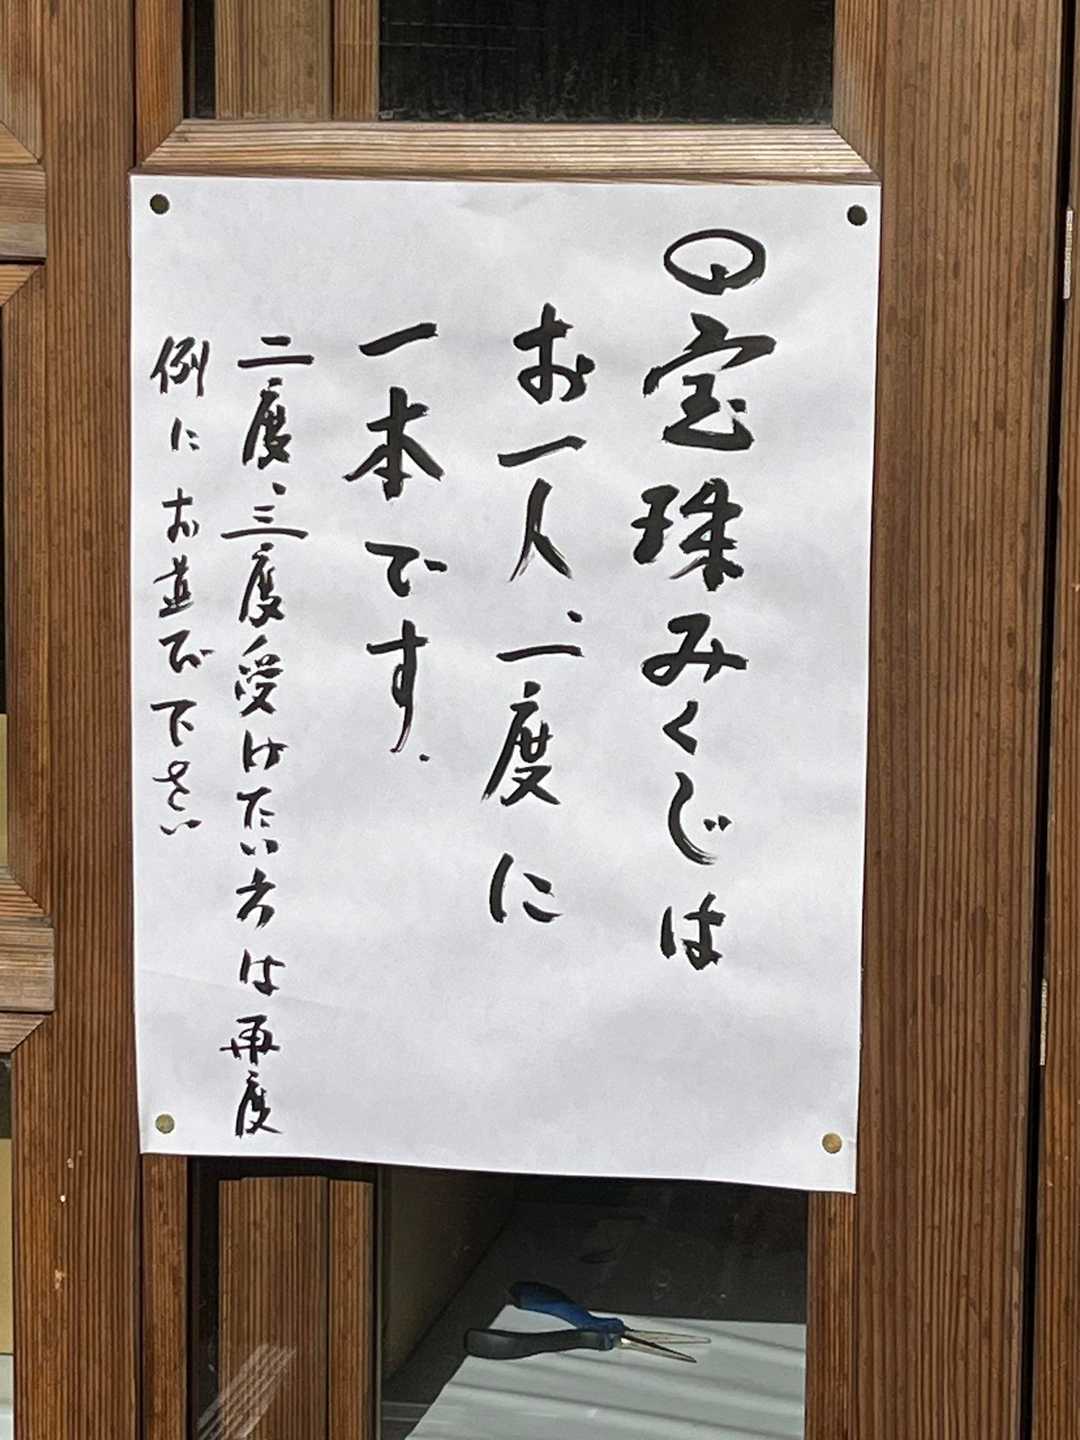 ◎宝珠みくじは
お一人、一度に
一本です.
二度、三度受けたい方は再度
例にお並び下さい